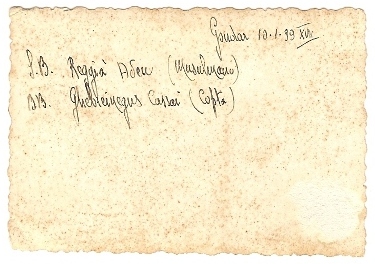 Gondar 10.1.39 XVII
S.B. Reggià Aden (Musulmano)
BB. Ghebreinegus Cassai (Copta)